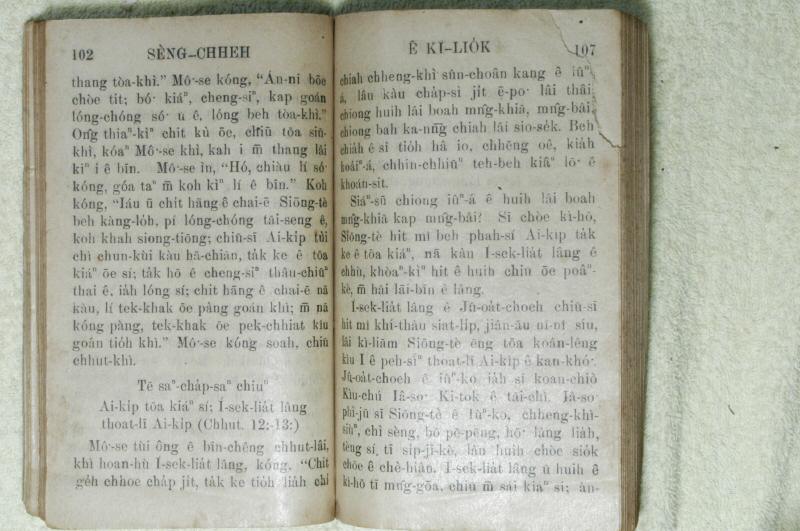 102 SÈNG-CHHEH
thang tòa-khì.” Mô͘-se kóng, “Án-ni bōe
chòe tit; bó͘ kiáⁿ, cheng-siⁿ, kap goán
lóng-chóng só͘ ū ê, lóng beh tòa-khì.”
Ông thiaⁿ-kìⁿ chit kù ōe, chiū tōa siū-
khì, kóaⁿ Mô͘-se khì, kah i m̄ thang lâi
kìⁿ i ê bīn. Mô͘-se ìn, “Hó, chiàu lí só͘
kóng, góa taⁿ m̄ koh kìⁿ lí ê bīn.” Koh
kóng, “Iáu ū chit hāng ê chai-ē Siōng-tè
beh kàng-lo̍h, pí lóng-chóng tāi-seng ê,
koh khah siong-tiōng; chiū-sī Ai-ki̍p tùi
chì chun-kùi kàu hā-chiān, ta̍k ke ê tōa
kiáⁿ ōe sí; ta̍k hō ê cheng-siⁿ thâu-chiūⁿ
thai ê, ia̍h lóng sí; chit hāng ê chai-ē nā
kàu, lí tek-khak ōe pàng goán khì; m̄ nā
kóng pàng, tek-khak ōe pek-chhiat kiu
goán tio̍h khì.” Mô͘-se kóng soah, chiū
chhut-khì.
Tē saⁿ-cha̍p-saⁿ chiuⁿ
Ai-ki̍p tōa kiáⁿ sí; Í-sek-lia̍t lâng
thoat-lī Ai-ki̍p (Chhut. 12:-13:)
Mô͘-se tùi ông ê bīn-chêng chhut-lâi,
khì hoan-hù Í-sek-lia̍t lâng, kóng, “Chit
ge̍h chhoe cha̍p ji̍t, ta̍k ke tio̍h lia̍h chi̍
Ê KÌ-LIO̍K 107
chiah chheng-khì sûn-choân kang ê iûⁿ
á, lâu kàu cha̍p-sì ji̍t ē-po͘ lâi thâi
chiong huih lâi boah mn̂g-khiā, mn̂g-bâi,
chiong bah ka-nn̄g chiah lâi sio-se̍k. Beh
chia̍h ê sî tio̍h hâ io, chhēng oê, kia̍h
koáiⁿ-á, chhin-chhiūⁿ teh-beh kiâⁿ lō͘ ê
khoán-sit.
Siáⁿ-sū chiong iûⁿ-á ê huih lâi boah
mn̂g-khiā kap mn̂g-bâi? Sī chòe kì-hō,
Siōng-tè hit mî beh phah-sí Ai-ki̍p ta̍k
ke ê tōa kiáⁿ, nā kàu Í-sek-lia̍t lâng ê
chhù, khòaⁿ-kìⁿ hit ê huih chiū ōe poâⁿ-
kè, m̄ hāi lāi-bīn ê lâng.
Í-sek-lia̍t lâng ê Jû-oa̍t-choeh chiū-sī
hit mî khí-thâu siat-li̍p, jiân-āu nî-nî síu,
lâi kì-liām Siōng-tè ēng tōa koân-lêng
kiu I ê peh-sìⁿ thoat-lī Ai-ki̍p ê kan-khó͘.
Jû-oa̍t-choeh ê iûⁿ-ko ia̍h sī koan-chiò
Kiu-chú Iâ-so͘ Ki-tok ê tāi-chì. Iâ-so͘
phì-jū sī Siōng-tè ê iûⁿ-ko, chheng-khì-
siùⁿ, chì sèng, bô pē-pēng, hō͘ lâng lia̍h,
tèng sí, tī si̍p-jī-kè, lâu huih chòe sio̍k
chōe ê chè-hiàn. Í-sek-lia̍t lâng ū huih ê
kì-hō tī mn̂g-gōa, chiū m̄ sái kiaⁿ sí; án-